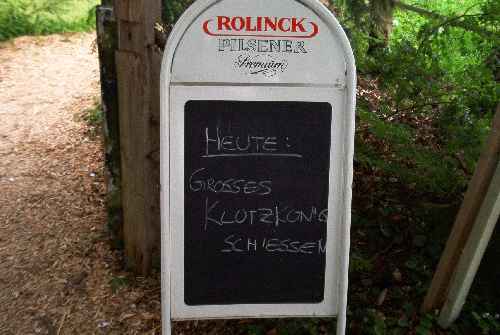 ROLINCK
PILSENER
Premium
HEUTE:
GROSSES
KLOTZKÖNIG
SCHIESSEN